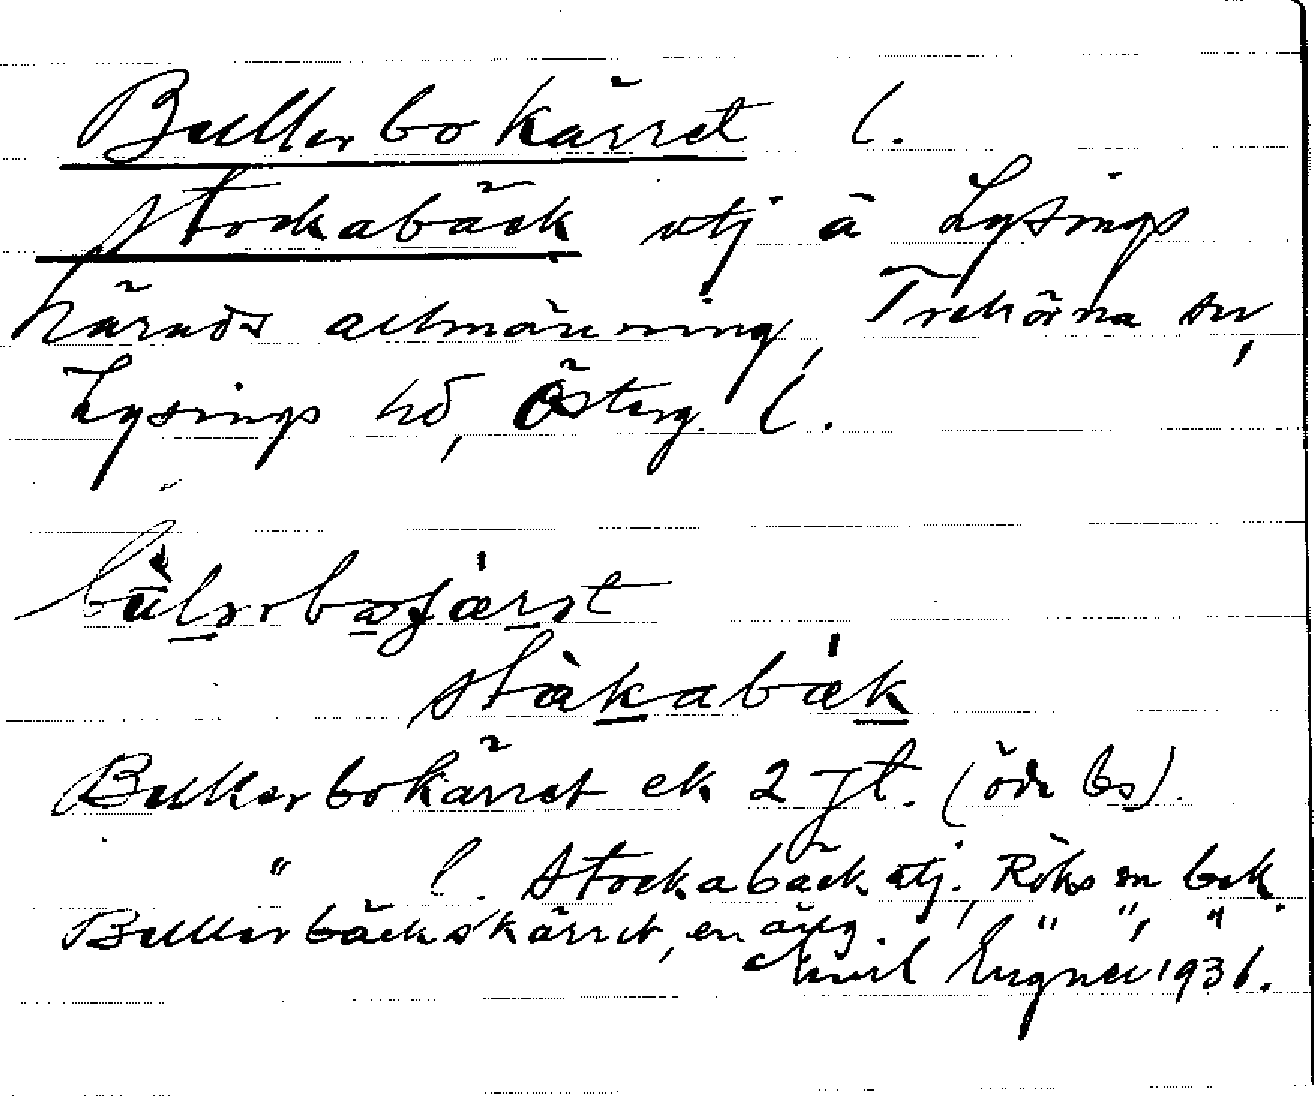 Bullerbokärret l.
Stockabäck utj å Lysings
härads allmänning, Trehörna sn,
Lysings hd, Österg. l.
stàkabæ'k
Bullerbokärret ek 2 jt. (öde bs).
" l. Stockabäck utj., Röks sn bek.
Bullerbäckskärret, en äng " ", "
Emil 1936.